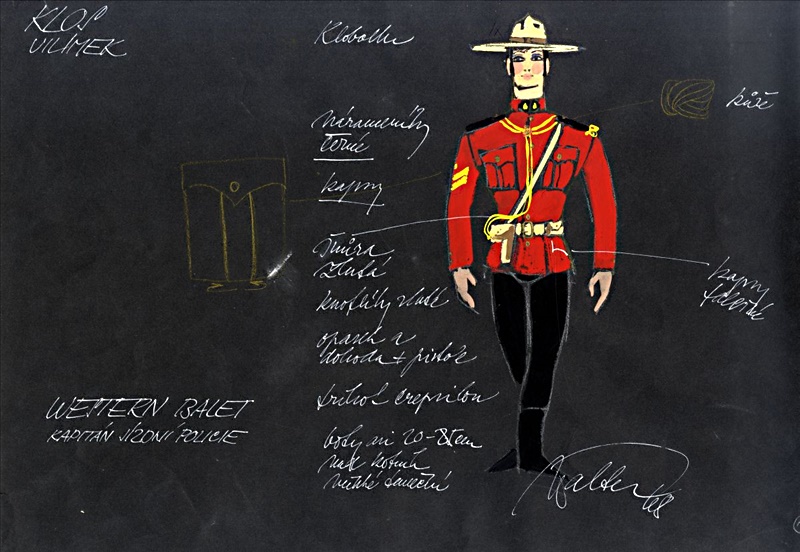 KLOS
VILÍMEK
Klobouk
nárameníky
černé
kapsy
šňůra
zlatá
knoflíky zlaté
opasek a
dohoda + pistole
trikot crepsilon
boty asi 20-
nad kotník
měkké taneční
kůže
kapsy
falešné
WESTERN BALET
KAPITÁN JÍZDNÍ POLICIE
Walter 68